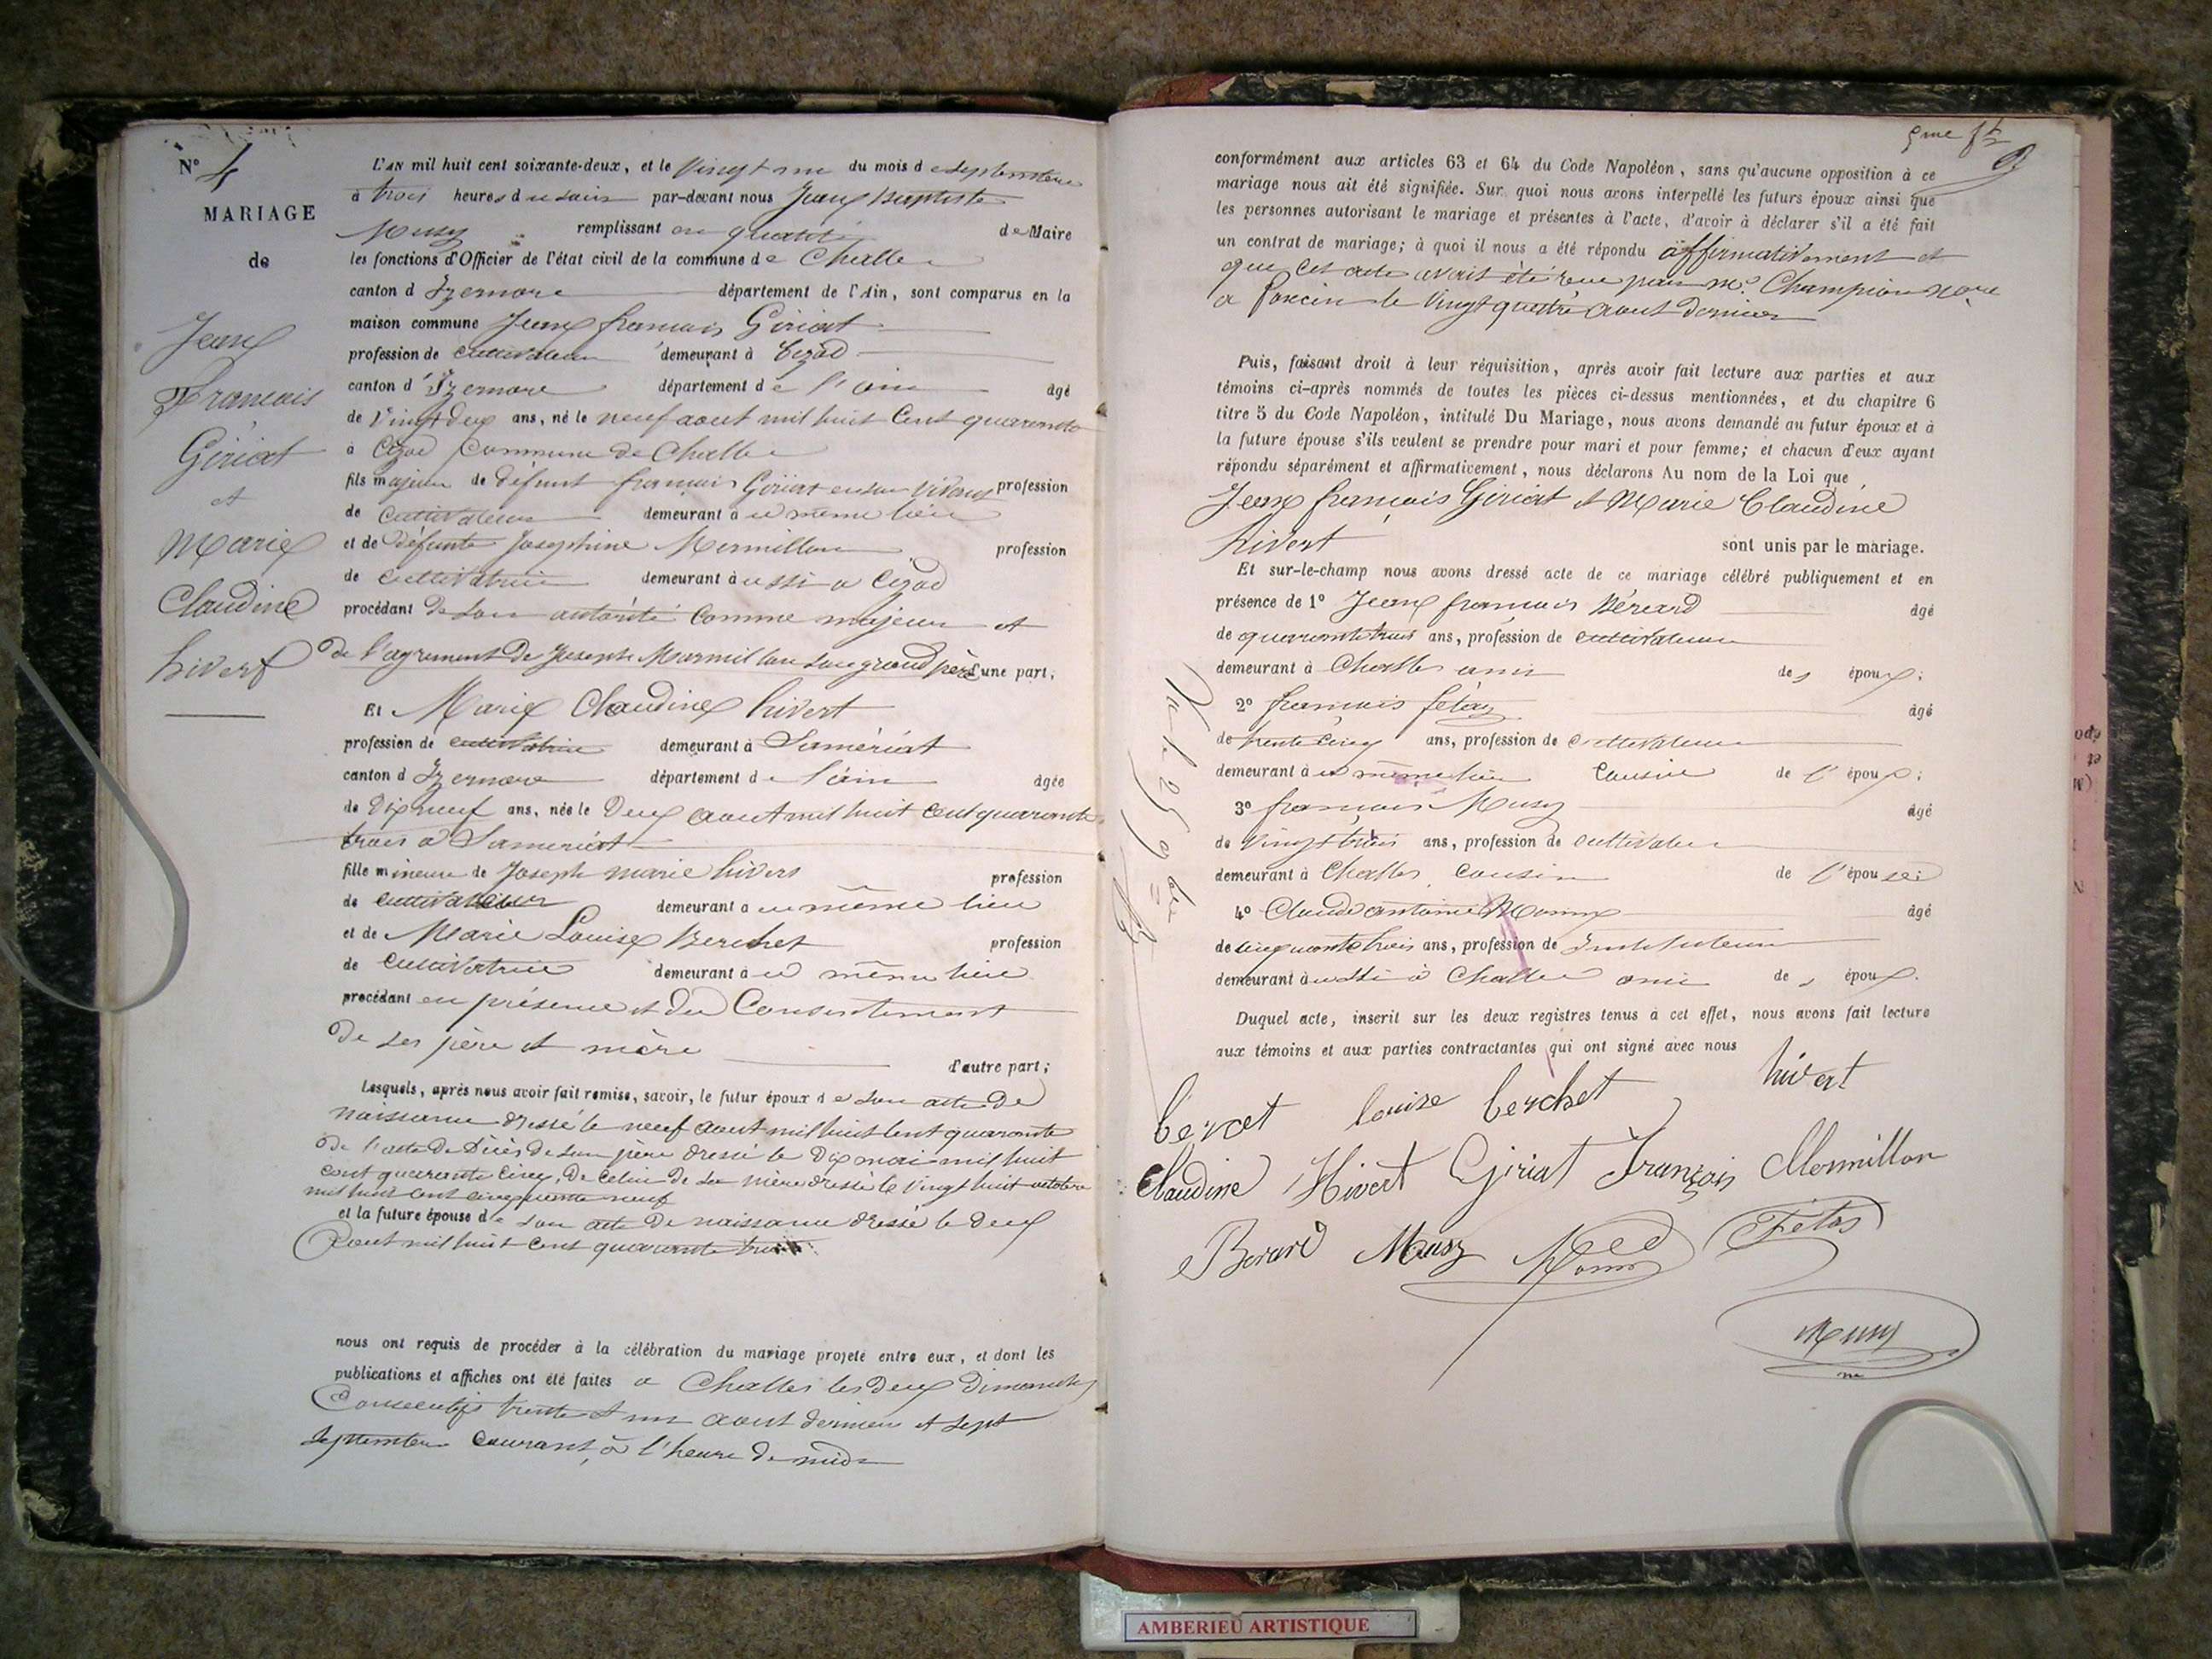 N° 4
MARIAGE
de
Jean
François
Giriat
et
Marie
Claudine
hivert
L'AN mil huit cent soixante-deux, et le Vingt un du mois de septembre
à trois heures du soir par-devant nous Jean Baptiste
Musy remplissant en qualité de Maire
les fonctions d'Officier de l'état civil de la commune de Challes
canton d'Izernore département de l'Ain, sont comparus en la
maison commune Jean françois Giriat
profession de cultivateur demeurant à Cizod
canton d'Izernore département de l'ain âgé
de Vingt deux ans, né le neuf aout mil huit Cent quarante
à Cizod Commune de Challes
fils majeur de défunt françois Giriat en son Vivant profession
de Cultivateur demeurant à ce même lieu
et de défunte Josephine Mermillon profession
de cultivatrice demeurant aussi à Cizod
procédant de son autorité comme majeur et
de l'agrement de Joseph Mermillon son grand père d'une part,
Et Marie Claudine hivert
profession de cultivatrice demeurant à Samériat
canton d'Izernore département de l'ain âgée
de Dix neuf ans, née le Deux aout mil huit cent quarante
trois à Sameriat
fille mineure de Joseph marie hivert profession
de cultivateur demeurant à ce même lieu
et de Marie Louise Berchet profession
de Cultivatrice demeurant à ce même lieu
procédant en présence et du Consentement
de ses père et mère d'autre part;
Lesquels, après nous avoir fait remise, savoir, le futur époux de son acte de
naissance dressé le neuf aout mil huit Cent quarante
de l'acte de Décès de son père dressé le Dix mai mil huit
cent quarante cinq, De celui de sa mère dressé le Vingt huit octobre
mil huit cent cinquante neuf
et la future épouse de son acte de naissance dressé le deux
aout mil huit cent quarante trois
nous ont requis de procéder à la célébration du mariage projeté entre eux, et dont les
publications et affiches ont été faites à Challes les Deux Dimanches
Consecutifs trente et un aout dernier et sept
septembre courant, à l'heure de midi
5me ft
conformément aux articles 63 et 64 du Code Napoléon, sans qu'aucune opposition à ce
mariage nous ait été signifiée. Sur quoi nous avons interpellé les futurs époux ainsi que
les personnes autorisant le mariage et présentes à l'acte, d'avoir à déclarer s'il a été fait
un contrat de mariage; à quoi il nous a été répondu affirmativement et
que cet acte avait été reçu par Me Champion Nore
à Poncin le Vingt quatre aout dernier
Puis, faisant droit à leur réquisition, après avoir fait lecture aux parties et aux
témoins ci-après nommés de toutes les pièces ci-dessus mentionnées, et du chapitre 6
titre 5 du Code Napoléon, intitulé Du Mariage, nous avons demandé au futur époux et à
la future épouse s'ils veulent se prendre pour mari et pour femme; et chacun d'eux ayant
répondu séparément et affirmativement, nous déclarons Au nom de la Loi que
Jean françois Giriat et Marie Claudine
hivert sont unis par le mariage.
Et sur-le-champ nous avons dressé acte de ce mariage célébré publiquement et en
présence de 1° Jean françois Bérard âgé
de quarante trois ans, profession de cultivateur
demeurant à Challes ami des époux;
2° françois félaz âgé
de trente cinq ans, profession de cultivateur
demeurant à ce même lieu Cousin de l'époux;
3° françois Musy âgé
de Vingt trois ans, profession de cultivateur
demeurant à Challes Cousin de l'épouse;
4° Claude antoine Monny âgé
de cinquante trois ans, profession de Instituteur
demeurant aussi à Challes ami des époux.
Duquel acte, inscrit sur les deux registres tenus à cet effet, nous avons fait lecture
aux témoins et aux parties contractantes qui ont signé avec nous
hivert
louise berchet
Claudine Hivert Giriat François Mermillon
Berard Musy Félas
Musy
AMBERIEU ARTISTIQUE